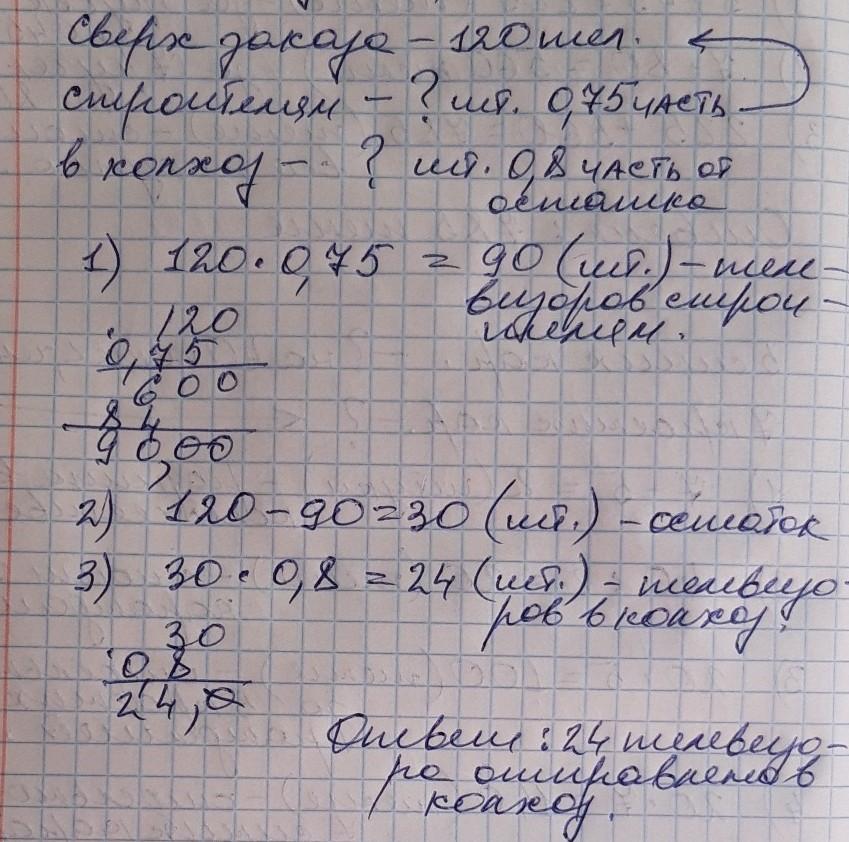 Сверх заказа - 120 тел.
строителям - ? шт. 0,75 часть
в колхоз - ? шт. 0,8 часть от
остатка
1) 120 · 0,75 = 90 (шт.) - теле-
визоров строи-
телям.
120
0,75
600
84
90,00
2) 120 - 90 = 30 (шт.) - остаток
3) 30 · 0,8 = 24 (шт.) - телевизо-
ров в колхоз.
30
0,8
24,0
Ответ : 24 телевизо-
ра отправлено в
колхоз.